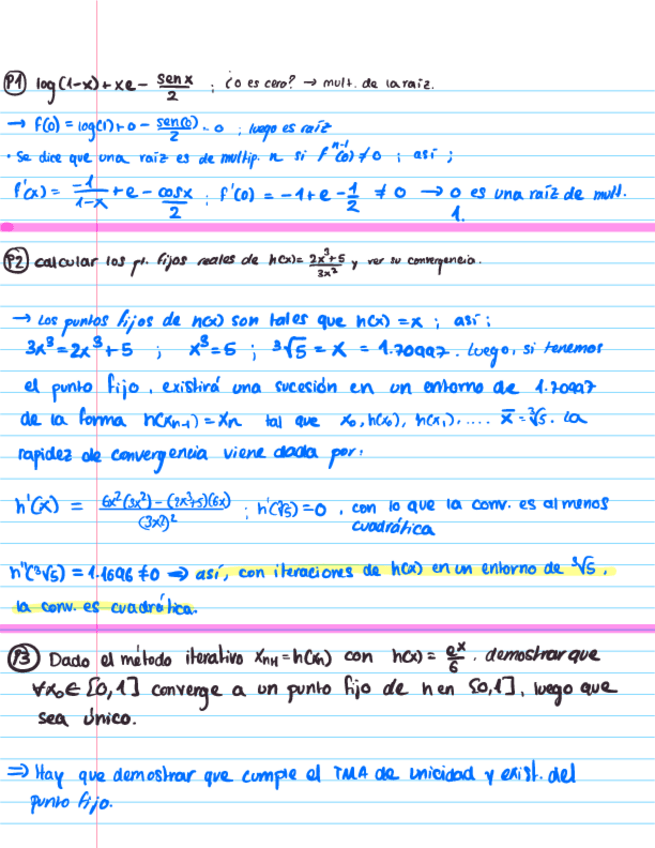 P1 log(1-x)+xe - senx/2 ; ¿0 es cero? → mult. de la raiz.
→ f(0) = log(1)+0 - sen(0)/2 = 0 ; luego es raíz
• Se dice que una raíz es de multip. n si f^(n-1)(0) ≠ 0 ; así ;
f'(x) = -1/(1-x) + e - cosx/2 ; f'(0) = -1+e - 1/2 ≠ 0 → 0 es una raíz de mult.
1.
P2 calcular los pt. fijos reales de h(x)= (2x³+5)/(3x²) y ver su convergencia.
→ Los puntos fijos de h(x) son tales que h(x) = x ; así :
3x³=2x³+5 ; x³=5 ; ³√5 = x = 1.70997. Luego, si tenemos
el punto fijo, existirá una sucesión en un entorno de 1.70997
de la forma h(xn-1) = xn tal que x₀, h(x₀), h(x₁), .... x̄ = ³√5. La
rapidez de convergencia viene dada por:
h'(x) = (6x²(3x²) - (2x³+5)(6x))/(3x²)² ; h'(³√5) = 0, con lo que la conv. es al menos
cuadrática
h''(³√5) = 1.1696 ≠ 0 ⇒ así, con iteraciones de h(x) en un entorno de ³√5,
la conv. es cuadrática.
P3 Dado el método iterativo xn+1 = h(xn) con h(x) = e^x/6, demostrar que
∀x₀ ∈ [0,1] converge a un punto fijo de h en [0,1], luego que
sea único.
⇒ Hay que demostrar que cumple el TMA de unicidad y exist. del
punto fijo.